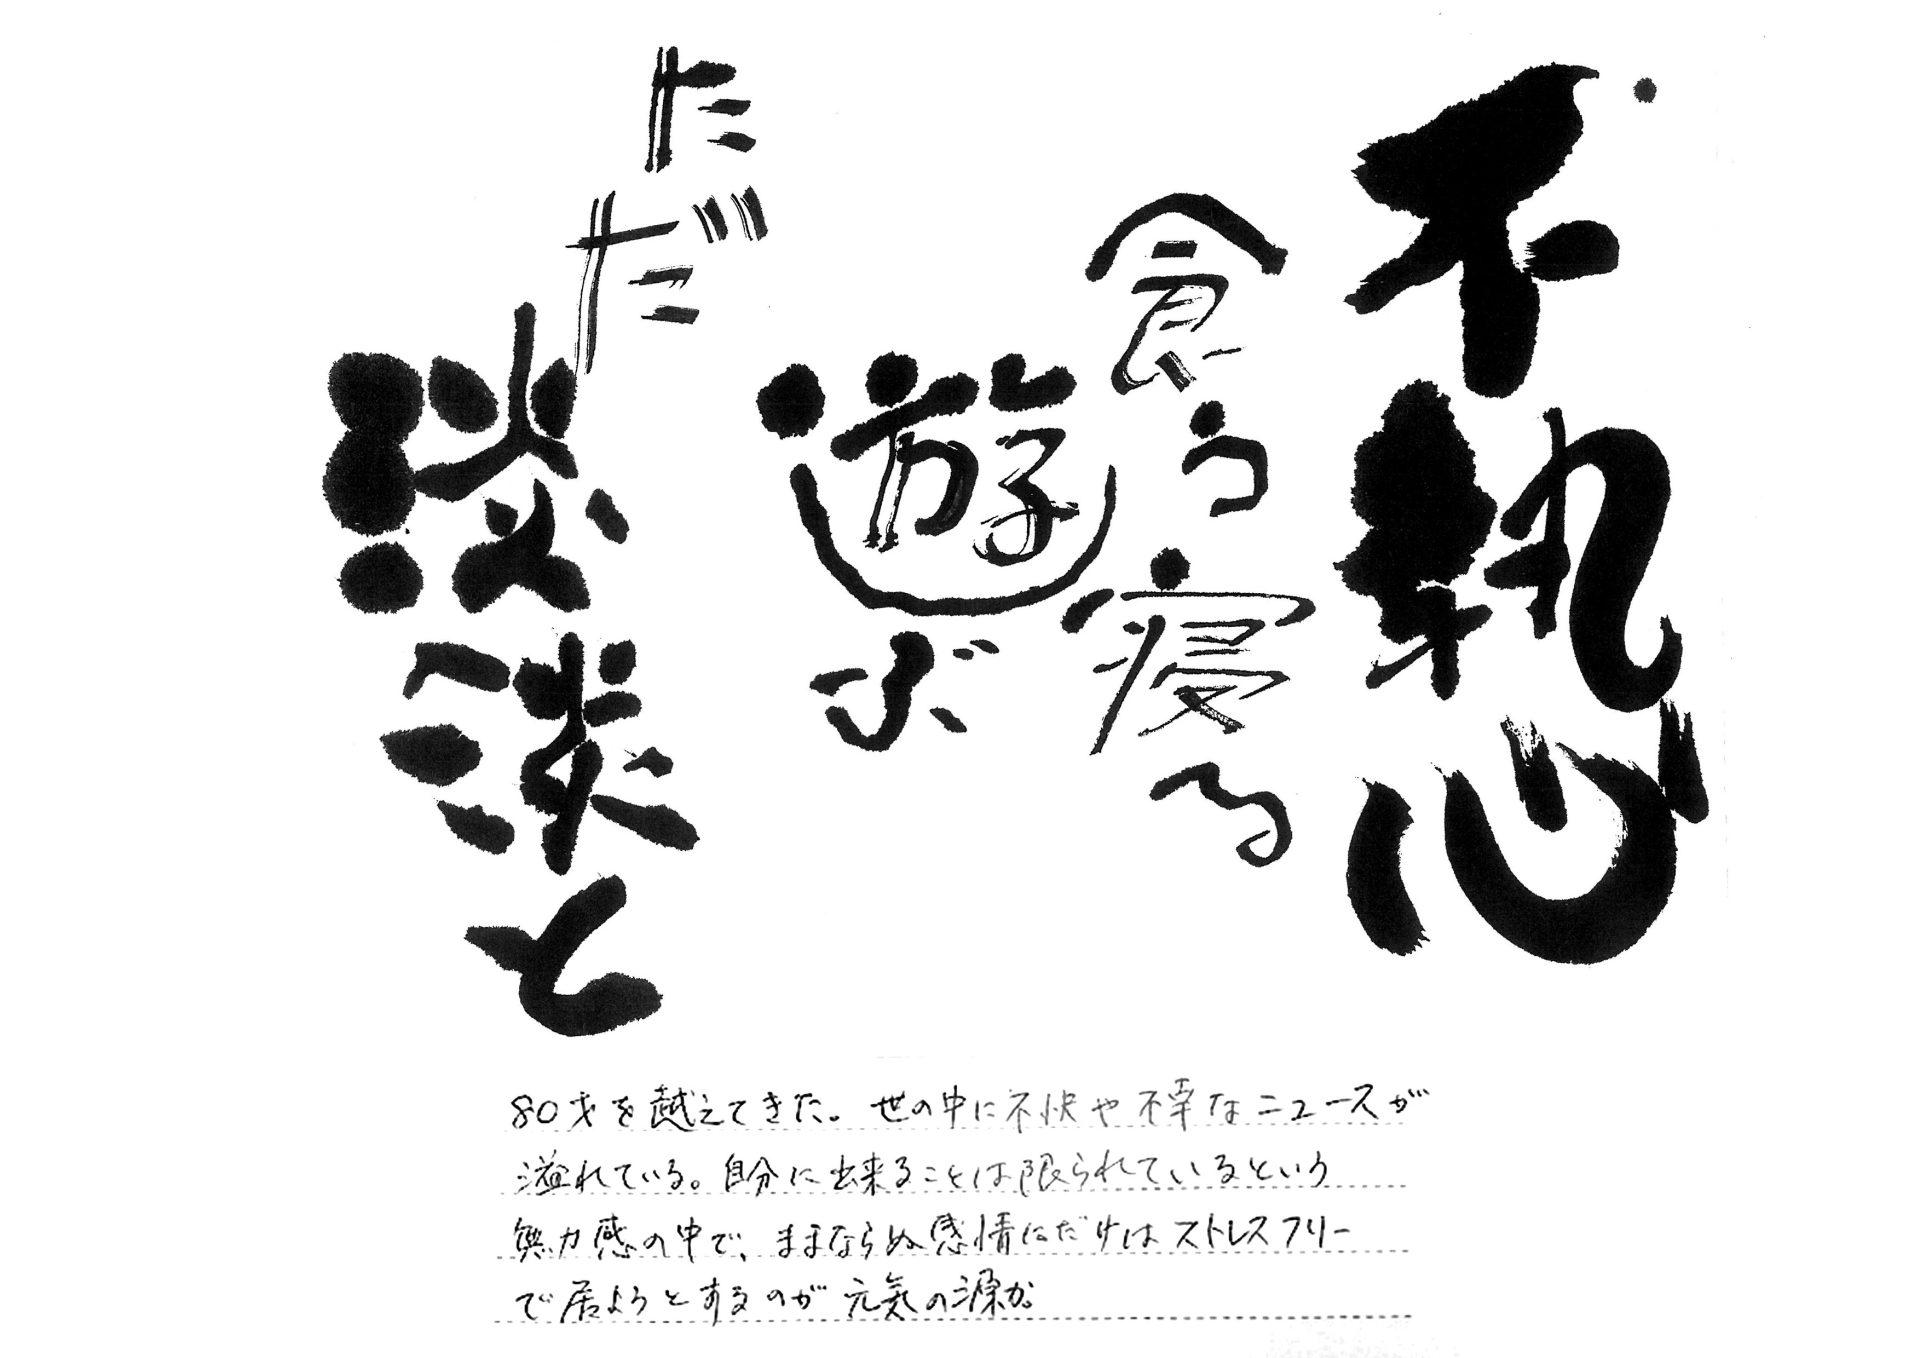 不執心
食う寝る
遊ぶ
ただ
淡淡と
80才を越えてきた。世の中に不快や不幸なニュースが
溢れている。自分に出来ることは限られているという
無力感の中で、ままならぬ感情にだけはストレスフリー
で居ようとするのが元気の源か。